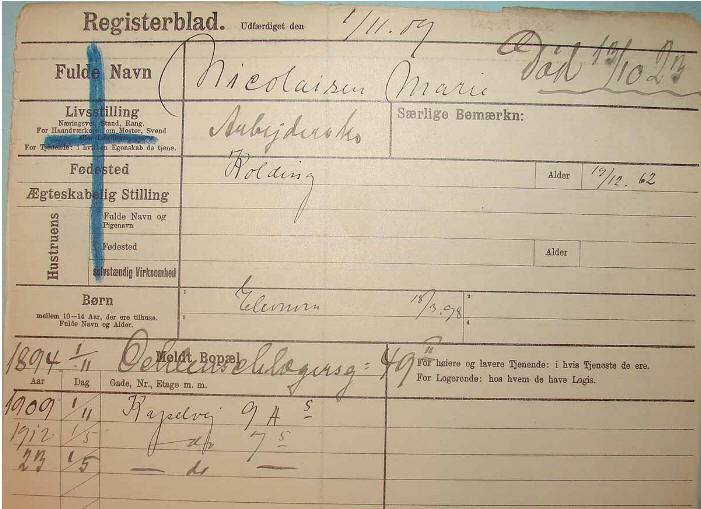 Registerblad. Udfærdiget den 1/11.09
Død 13/10 23
Fulde Navn Nicolaisen Marie
Livsstilling
Næringsvej, Stand, Rang.
For Haandværkere om Mester, Svend
For Tjenende: i hvilken Egenskab de tjene.
Særlige Bemærkn:
Fødested Kolding Alder 19/12. 62
Ægteskabelig Stilling
Hustruens
Fulde Navn og Pigenavn
Fødested Alder
selvstændig Virksomhed
Børn
mellem 10-14 Aar, der ere tilhuse.
Fulde Navn og Alder.
1 18/3.98 2
3 4
1894 1/11 Oehlenschlægersg: 49
Meldt Bopæl
Aar Dag Gade, Nr., Etage m. m.
For høiere og lavere Tjenende: i hvis Tjeneste de ere.
For Logerende: hos hvem de have Logis.
1909 1/11 Kapelvej 9 4 s
1912 1/5 — do 7 s
23 1/5 — do —